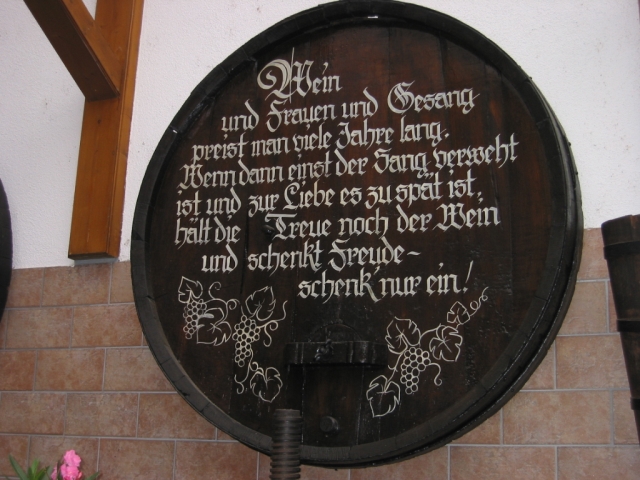 Wein
und Frauen und Gesang
preist man viele Jahre lang.
Wenn dann einst der Sang verweht
ist und zur Liebe es zu spät ist,
hält die Treue noch der Wein
und schenkt Freude-
schenk' nur ein!